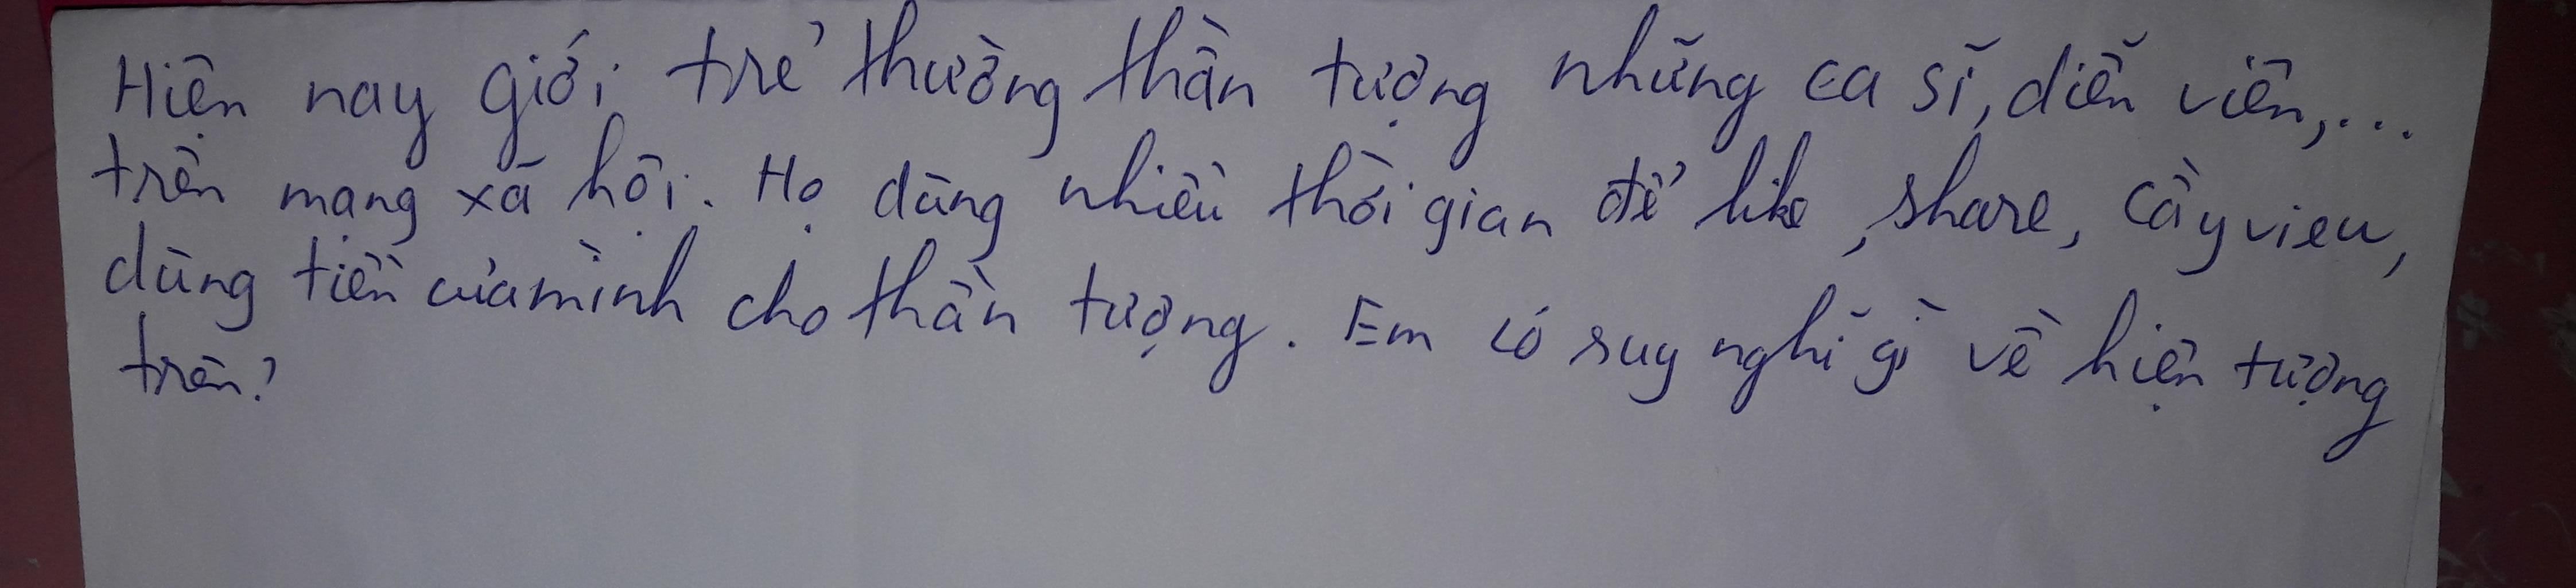 Hiện nay giới trẻ thường thần tượng những ca sĩ, diễn viên,...
trên mạng xã hội. Họ dùng nhiều thời gian để like, share, cày view,
dùng tiền của mình cho thần tượng. Em có suy nghĩ gì về hiện tượng
trên?